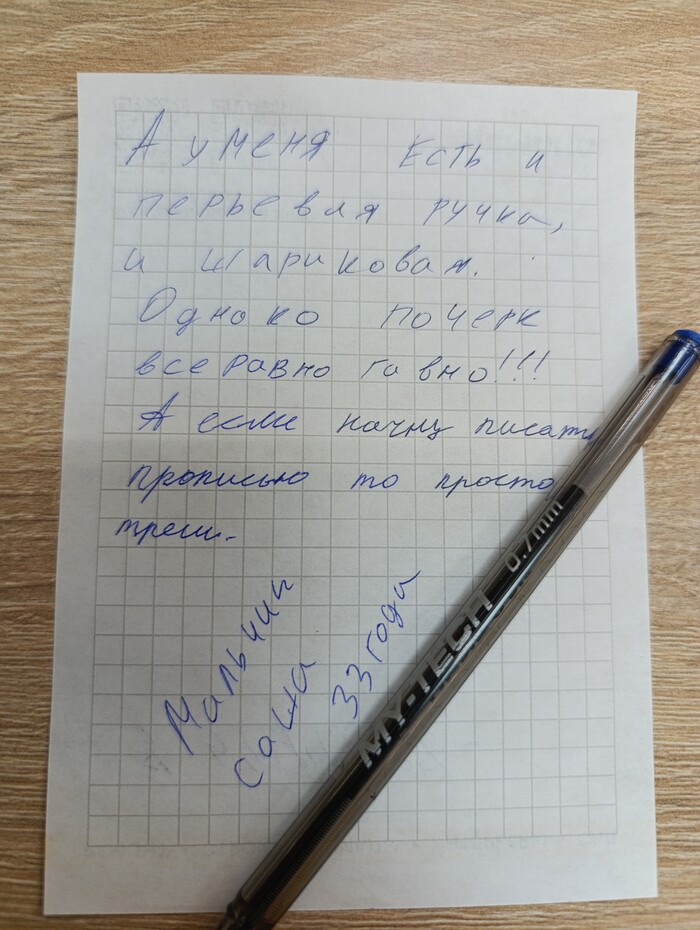 А у меня есть и
перьевая ручка,
и шариковая.
Однако почерк
всеравно гавно!!!
А если начну писать
прописью то просто
треш.
Мальчик
Саша 33 года
MY-TECH 0.7mm